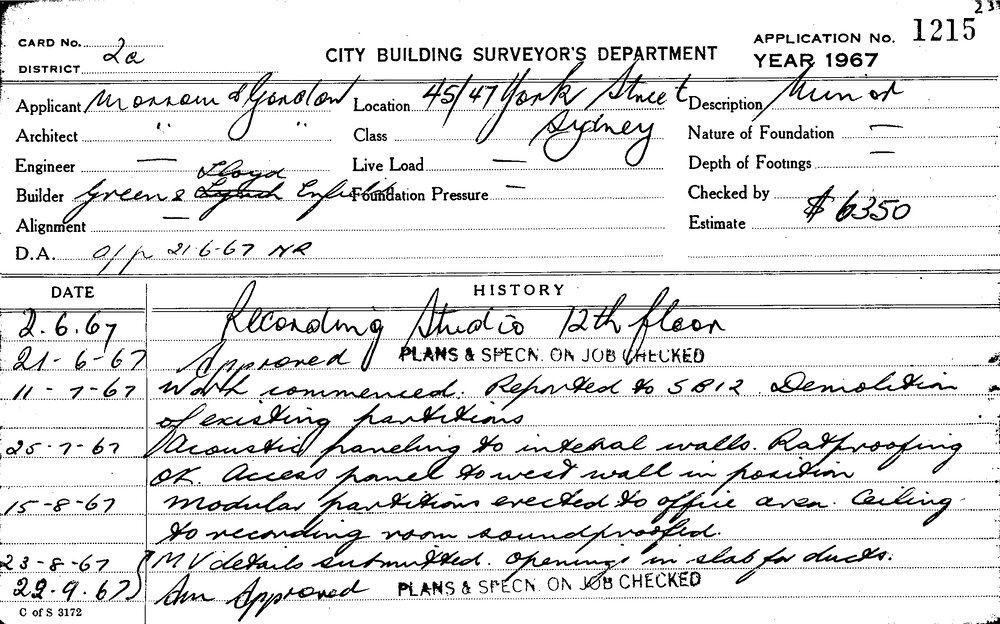 23
CARD No. 2a
DISTRICT
CITY BUILDING SURVEYOR'S DEPARTMENT
APPLICATION No. 1215
YEAR 1967
Applicant Morrow & Gordon Location 45/47 York Street Description Minor
Architect " " Class Sydney Nature of Foundation —
Engineer — Live Load — Depth of Footings —
Builder Green & Lloyd Enfield Foundation Pressure — Checked by
Alignment — Estimate $ 6350
D.A. a/p 21-6-67 NR
DATE HISTORY
2.6.67 Recording Studio 12th floor
21-6-67 Approved PLANS & SPECN. ON JOB CHECKED
11-7-67 Work commenced. Reported to SB12. Demolition
of existing partitions
25-7-67 Acoustic paneling to internal walls. Ratproofing
OK. Access panel to west wall in position
15-8-67 Modular partitions erected to office area. Ceiling
to recording room soundproofed.
23-8-67 MV details submitted. Openings in slab for ducts.
22.9.67 Am Approved PLANS & SPECN. ON JOB CHECKED
C of S 3172